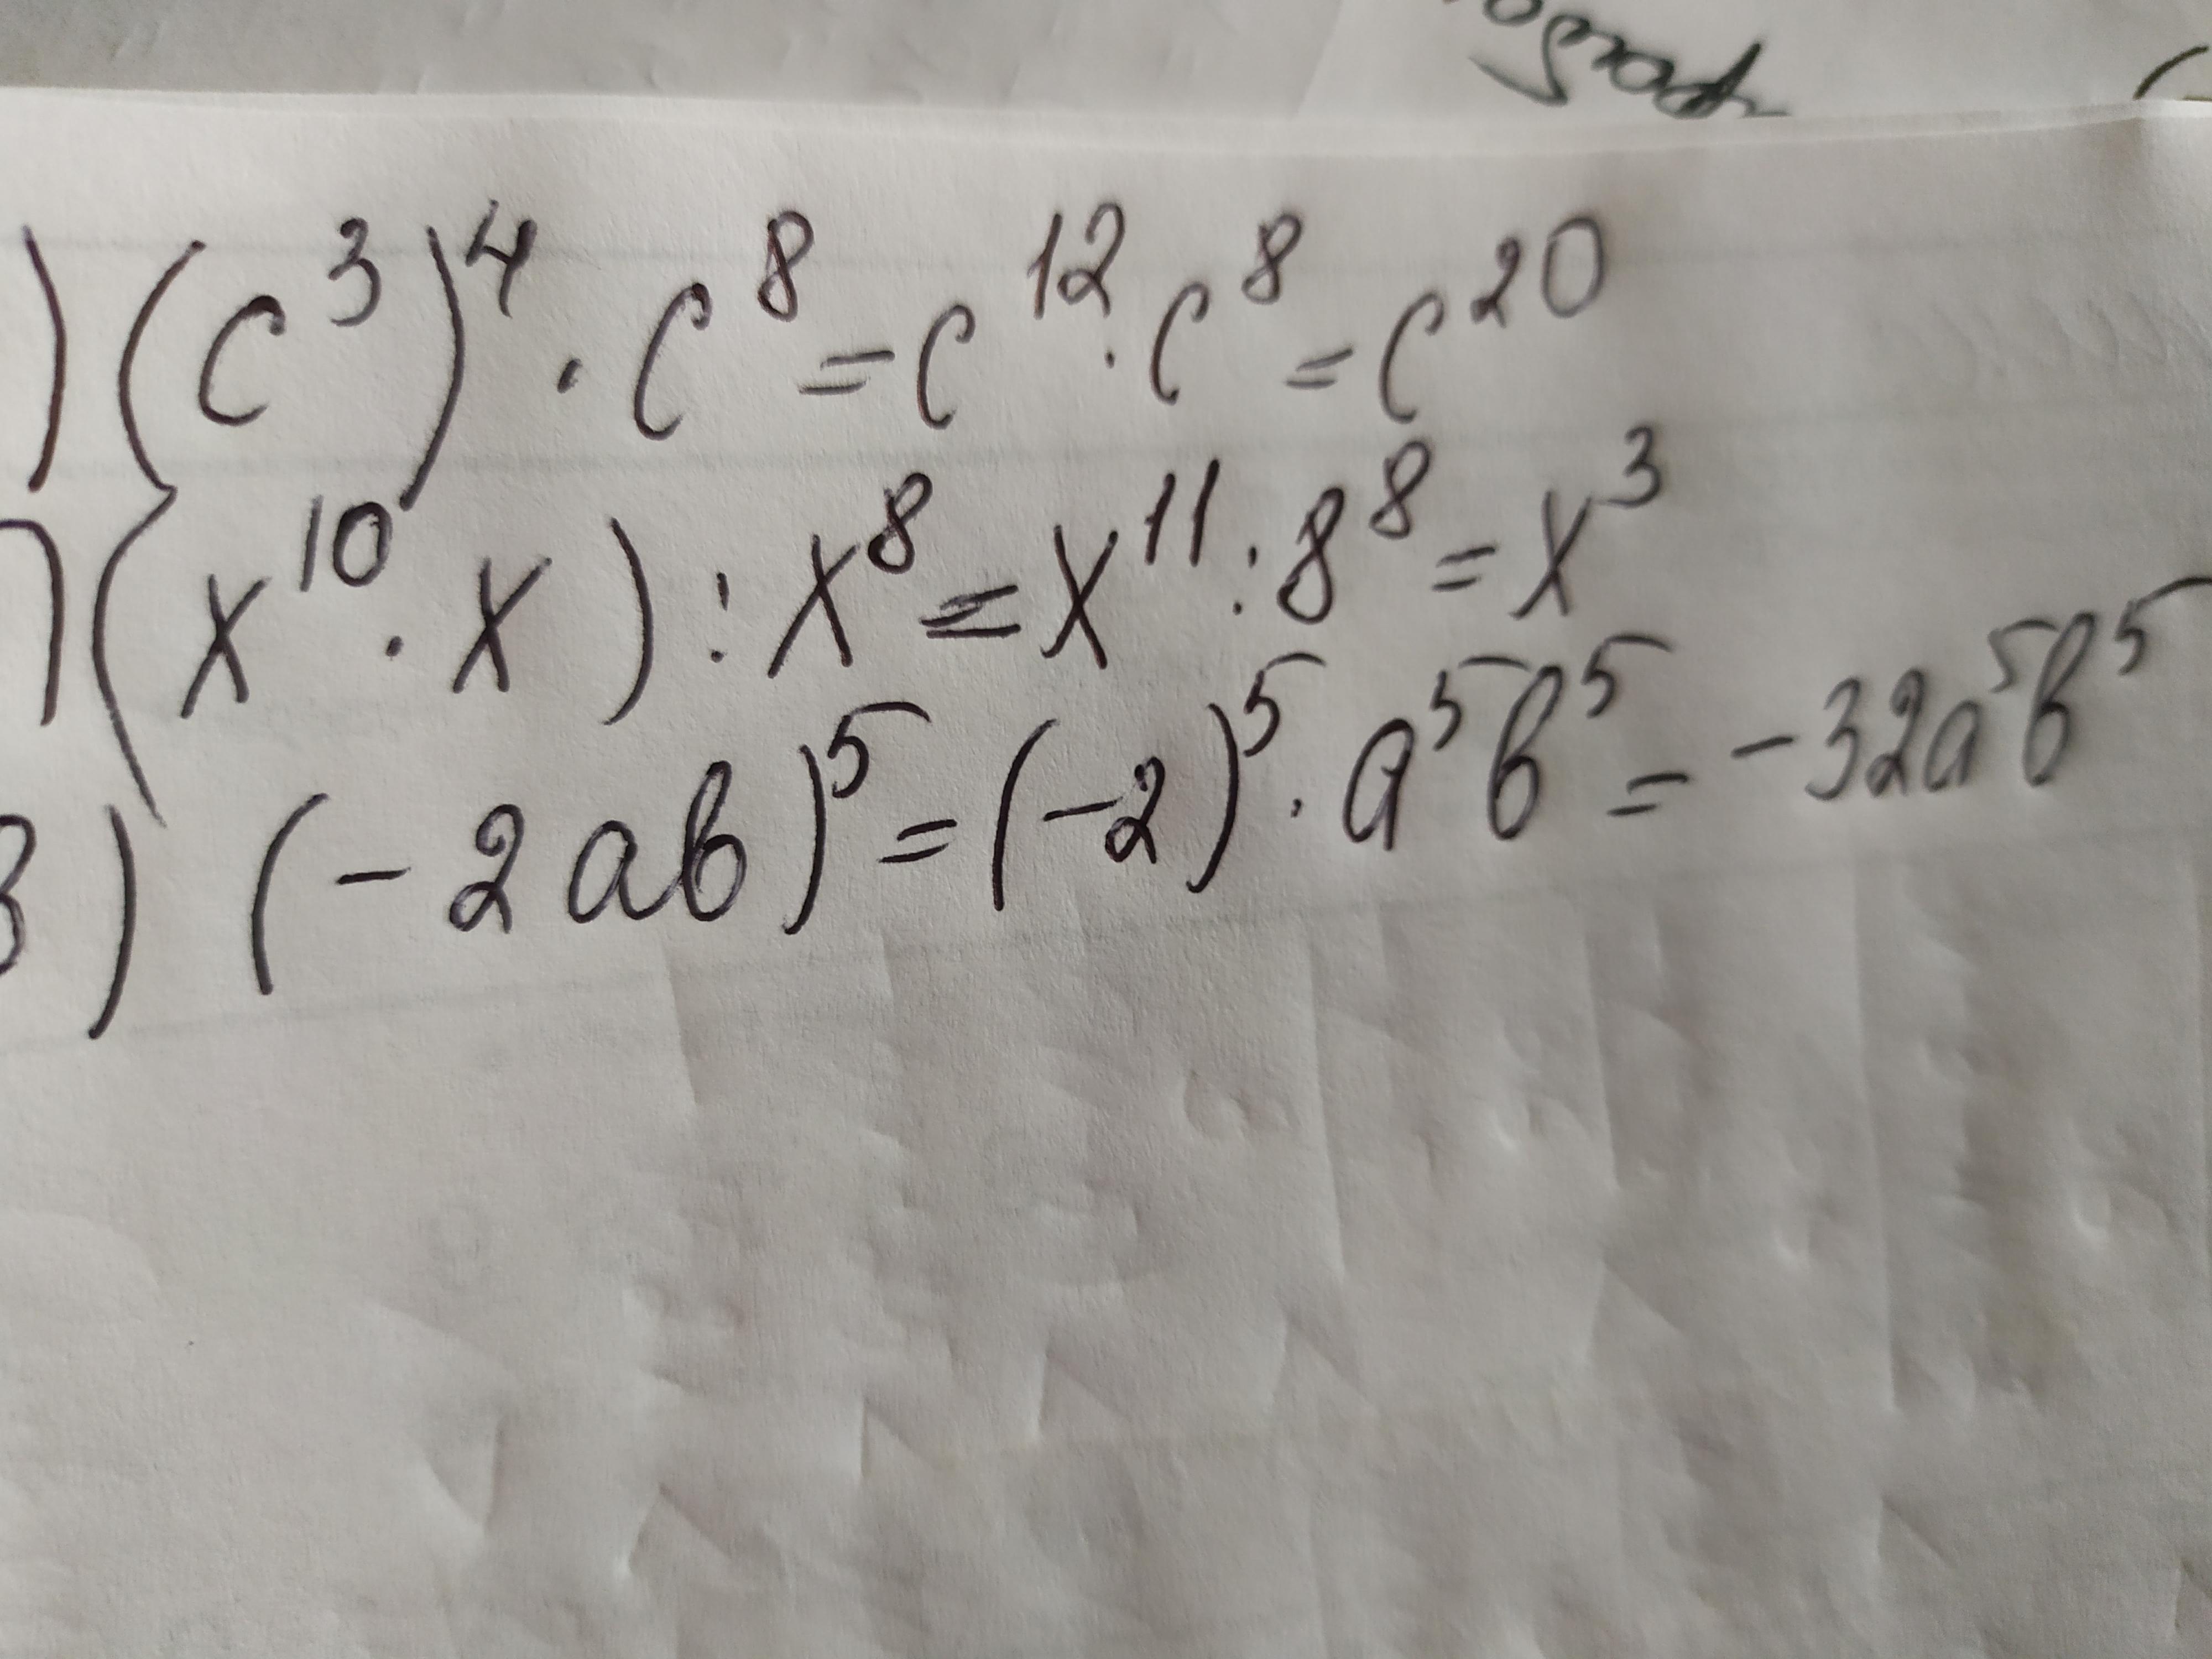 ) (c³)⁴ · c⁸ = c¹² · c⁸ = c²⁰
(x¹⁰ · x) : x⁸ = x¹¹ : 8⁸ = x³
) (-2ab)⁵ = (-2)⁵ · a⁵b⁵ = -32a⁵b⁵